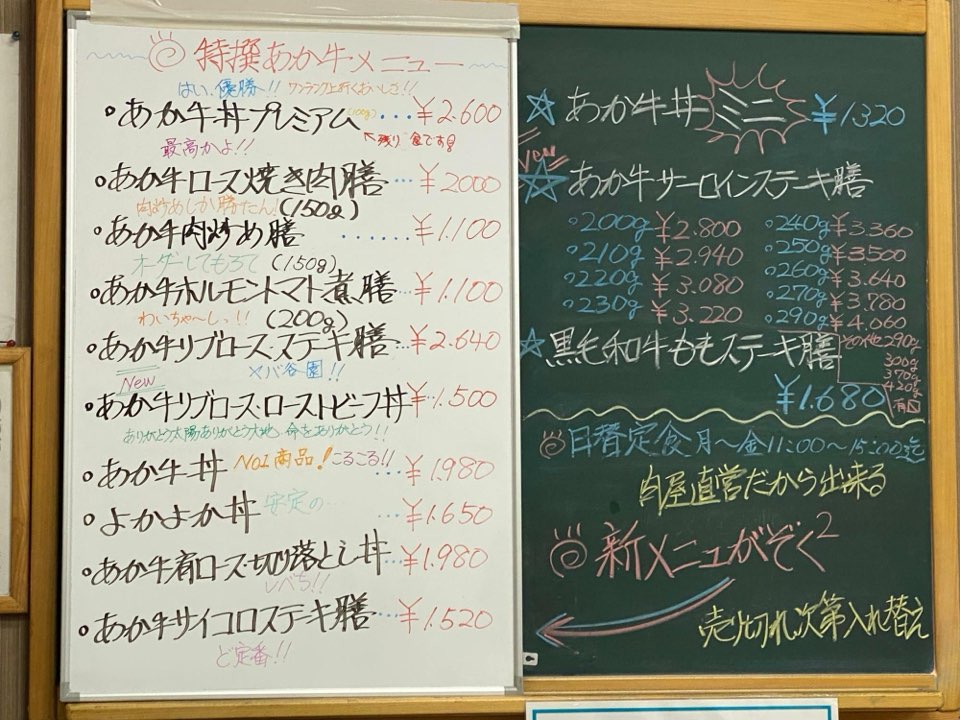 特撰あか牛メニュー
はい、優勝!! ワンランク上行くおいしさ!!
・あか牛丼プレミアム(100g)...¥2.600
最高かよ!!
残り 食です!
・あか牛ロース焼き肉膳...¥2000
肉炒めしか勝たん! (150g)
・あか牛肉炒め膳......¥1.100
オーダーしてもろて (150g)
・あか牛ホルモントマト煮膳...¥1.100
わいちゃ〜しっ!! (200g)
・あか牛リブロース・ステーキ膳...¥2.640
New ヤバ谷園!!
・あか牛リブロース・ローストビーフ丼 ¥1.500
ありがとう太陽ありがとう大地 命をありがとう!!
・あか牛丼 No1商品! こるこる!!...¥1980
・よかよか丼 安定の... ...¥1.650
・あか牛肩ロース・切り落とし丼...¥1.980
レベち!!
・あか牛サイコロステーキ膳...¥1.520
ど定番!!
☆あか牛丼ミニ ¥1320
New
☆あか牛サーロインステーキ膳
・200g ¥2.800
・210g ¥2.940
・220g ¥3.080
・230g ¥3.220
・240g ¥3.360
・250g ¥3500
・260g ¥3.640
・270g ¥3.780
・290g ¥4.060
その他290g
300g
370g
420g
有
☆黒毛和牛ももステーキ膳
¥1.680
日替定食月〜金11:00〜15:00迄
肉屋直営だから出来る
新メニュがぞく2
売り切れ次第入れ替え